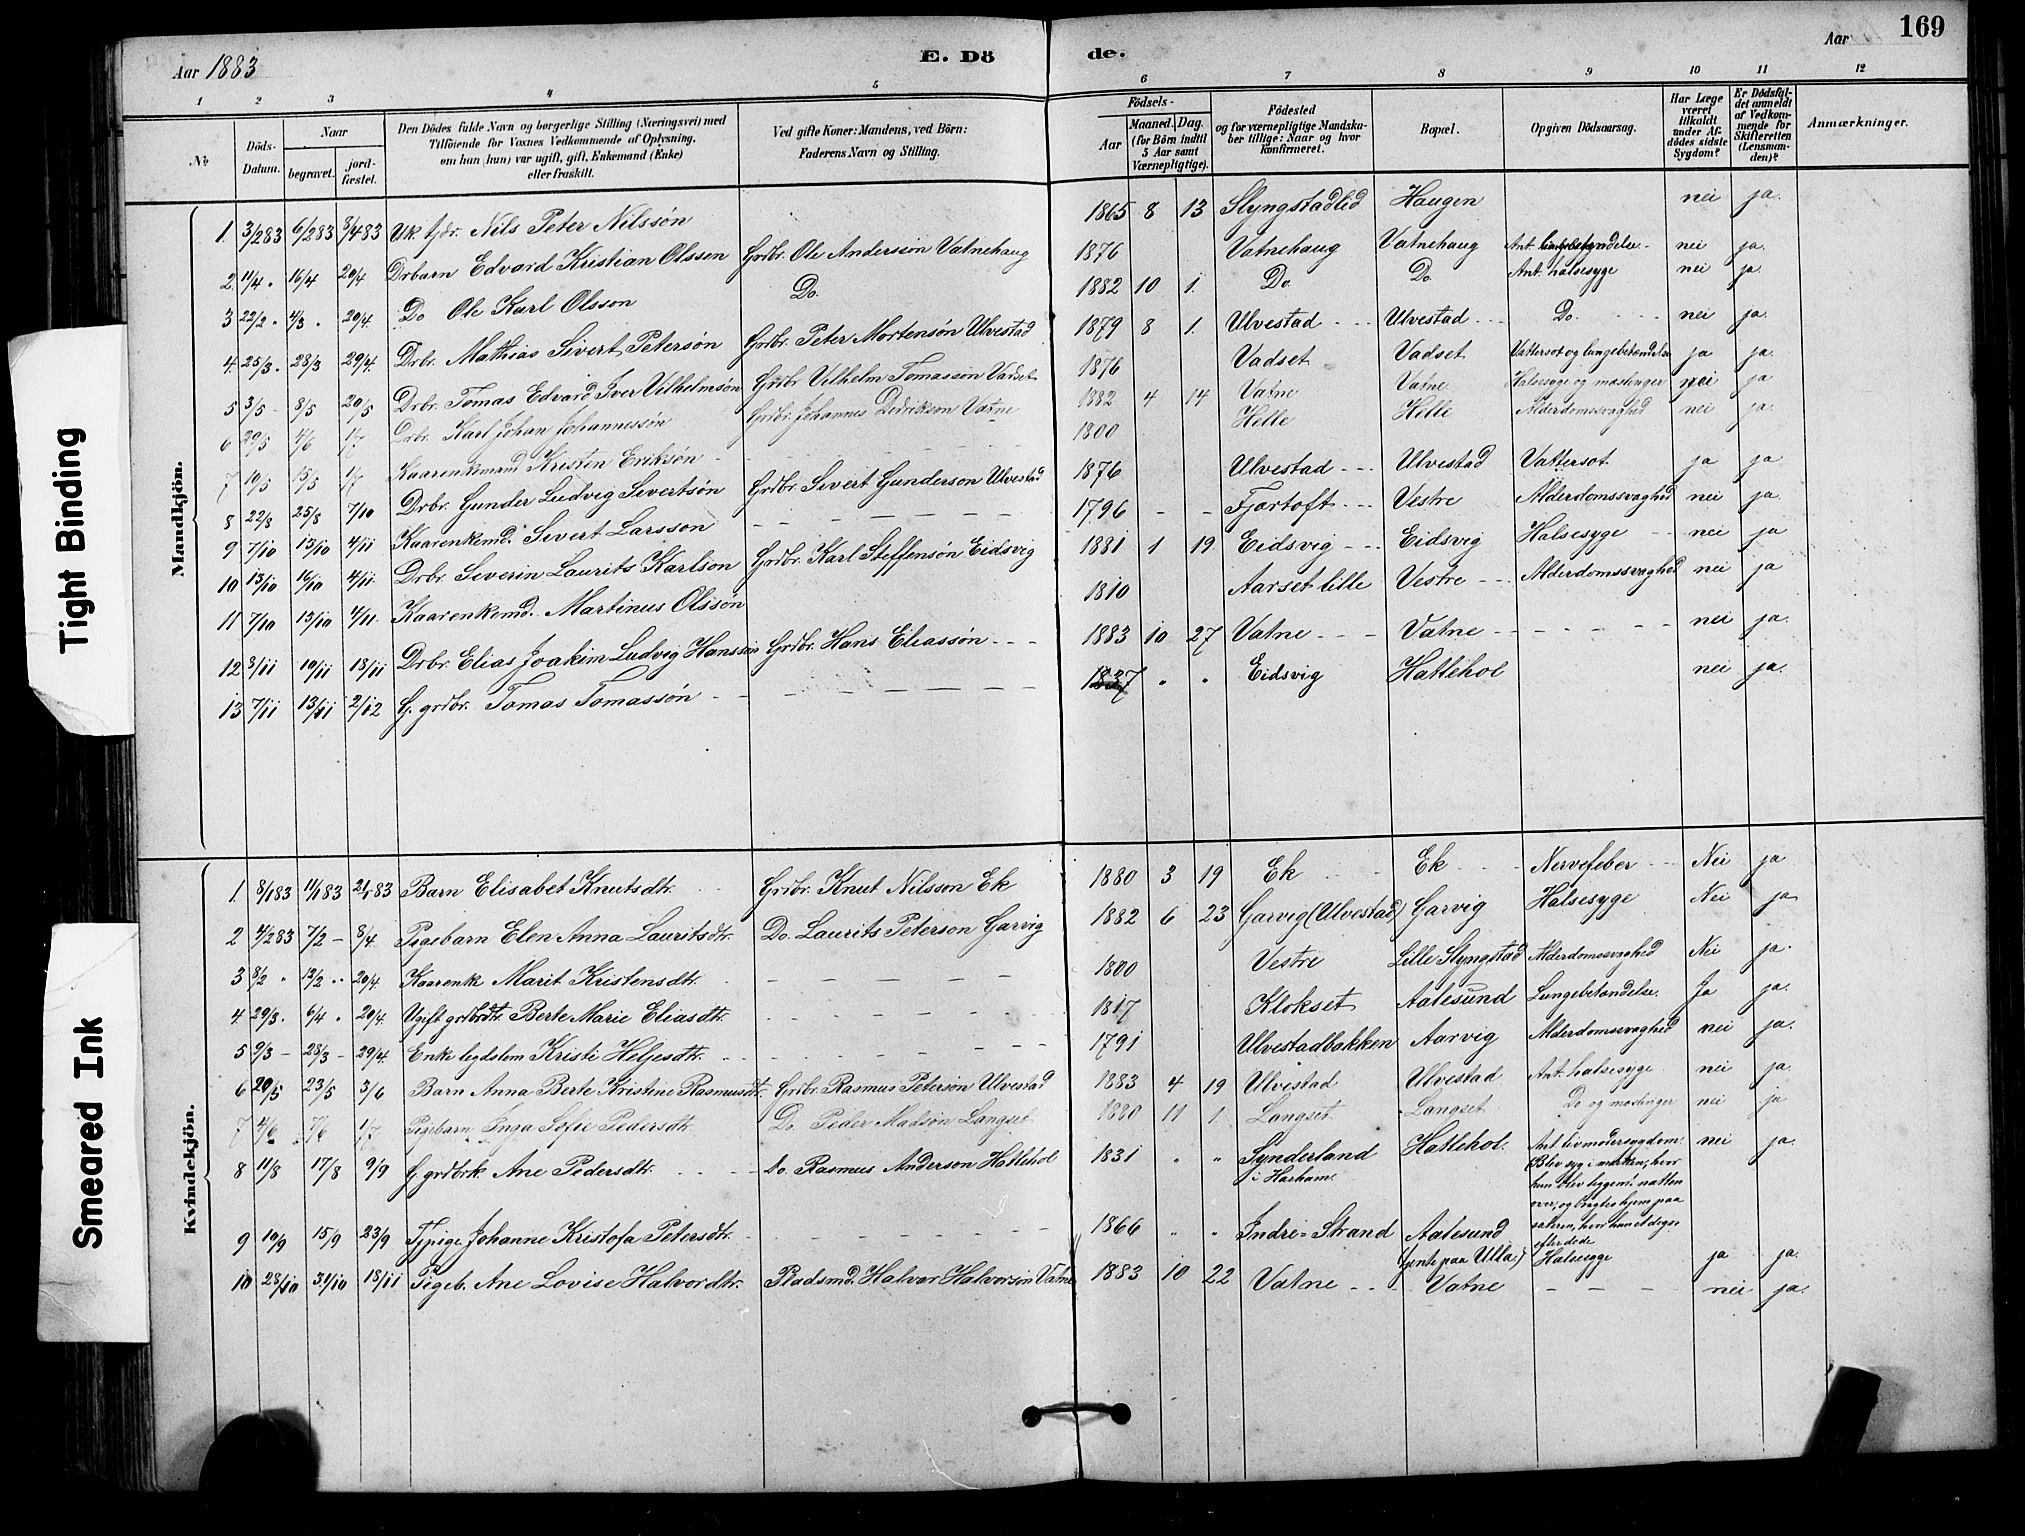 169
Aar 1883
E. Dö
de.
Aar
1 2 3 4 5 6 7 8 9 10 11 12
No
Döds-Datum.
Naar
begravet.
jord-fæstet.
Den Dödes fulde Navn og borgerlige Stilling (Næringsvei) med
Tilföiende for Voxnes Vedkommende af Oplysning,
om han (hun) var ugift, gift, Enkemand (Enke)
eller fraskilt.
Ved gifte Koner: Mandens, ved Börn:
Faderens Navn og Stilling.
Födsels-
Aar
Maaned. Dag.
(for Börn indtil
5 Aar samt
Værnepligtige).
Födested
og for værnepligtige Mandska-
ber tillige: Naar og hvor
konfirmeret.
Bopæl.
Opgiven Dödsaarsag.
Har Læge
været
tilkaldt
under Af-
dödes sidste
Sygdom?
Er Dödsfal-
det anmeldt
af Vedkom-
mende for
Skifteretten
(Lensman-
den)?
Anmærkninger.
Mandkjön.
1. 3/2 83 6/2 83 8/4 83 Uk. fjdr. Nils Peter Nilssön 1865 8 13 Slyngstadlid Haugen nei ja.
2. 11/4 " 16/4 20/4 Drbarn Edvard Kristian Olssen Grdbr. Ole Anderssön Vatnehaug 1876 Vatnehaug Vatnehaug Ant. nei ja.
3 22/2 " 4/3 " 20/4. Do Ole Karl Olsson Do. 1882 10 1. Do. Do. Ant. halsesyge nei ja.
4. 25/3 - 28/3 29/4. Drbr. Mathias Sivert Petersön Grdbr. Peter Mortensön Ulvestad 1879 8 1. Ulvestad Ulvestad Do. nei ja.
5 3/5 - 8/5 20/5 Drbr. Tomas Edvard Iver Vilhelmsön Grdbr. Vilhelm Tomassön Vadset 1876 Vadset Vadset Vattersot og lungebetændelse ja ja.
6 29/5 4/6 1/7 Drbr. Karl Johan Johannessön Grdbr. Johannes Didrikson Vatne 1882 4 14 Vatne Vatne Halsesyge og meslinger nei ja
7 10/5 15/5 1/7 Kaarenkemand Kristen Eriksön 1800 Helle Helle Alderdomssvaghed nei ja.
8 22/8 25/8 7/10 Drbr. Gunder Ludvig Sivertsön Grdbr. Sivert Gunderson Ulvestad 1876 Ulvestad Ulvestad Vattersot. ja ja
9 7/10 13/10 4/11 Kaarenkemd. Sivert Larsson 1796 - - Fjørtoft Vestre Alderdomssvaghed nei ja.
10 13/10 16/10 4/11. Drbr. Severin Laurits Karlson Grdbr. Karl Steffensön Eidsvig 1881 1 19 Eidsvig Eidsvig Halsesyge nei ja
11 7/10 13/10 4/11. Kaarenkemd. Martinus Olssön 1810 Aarset lille Vestre Alderdomssvaghed nei ja
12 3/11 10/11 18/11 Drbr. Elias Joakim Ludvig Hanssön Grdbr. Hans Eliassön 1883 10 27 Vatne Vatne nei ja.
13 7/11 13/11 2/12 G. grdbr. Tomas Tomassön 1837 " " Eidsvig Hattehol nei ja.
Kvindekjön.
1. 8/1 83 11/1 83 21/1 83 Barn Elisabet Knutsdtr. Grdbr. Knut Nilsson Ek 1880 3 19 Ek Ek Nervefeber Nei ja
2 4/2 83 7/2 - 8/4. Pigebarn Elen Anna Lauritsdtr. Do. Laurits Peterson Garvig 1882 6 23 Garvig (Ulvestad) Garvig Halsesyge Nei ja
3 8/2 " 12/2 " 20/4. Kaarenk Marit Kristensdtr. 1800 Vestre Lille Slyngstad Alderdomssvaghed Nei ja.
4. 29/3. 6/4 " 20/4. Ugift grdbrdtr. Berte Marie Eliasdtr. 1817 Klokset Aalesund Lungebetændelse. Ja ja.
5 9/3 - 28/3 - 29/4. Enke legdslem Kristi Heljesdtr. 1791 Ulvestadbakken Aarvig Alderdomssvaghed nei ja.
6 20/5 23/5 3/6 Barn Anna Berte Kristine Rasmusdtr. Grdbr. Rasmus Peterson Ulvestad 1883 4 19 Ulvestad Ulvestad Ant. halsesyge nei ja.
7 4/6 7/6 1/7. Pigebarn Inga Sofie Pedersdtr. Do. Peder Madsön Langset 1880 11 1. Langset Langset Do og meslinger nei ja
8 11/8 17/8 9/9 G. grdbrk. Ane Pedersdtr. Do. Rasmus Anderson Hattehol 1831 " " Synderland i Harham. Hattehol. Ant. livmodersygdom. nei ja.
(Blev syg i marken, hvor
hun blev liggende natten
over, og bragtes hjem paa
efter døde
9 10/9 15/9 23/9 Tjpige Johanne Kristofa Petersdtr. 1866 " " Indre-Strand Aalesund (jente paa Ulla.) Halsesyge ja ja.
10 28/10 31/10 18/11 Pigeb. Ane Lovise Halvordtr. Pladsmd. Halvar Halvorsön Vatne 1883 10 22 Vatne Vatne nei ja.
Tight Binding
Smeared Ink